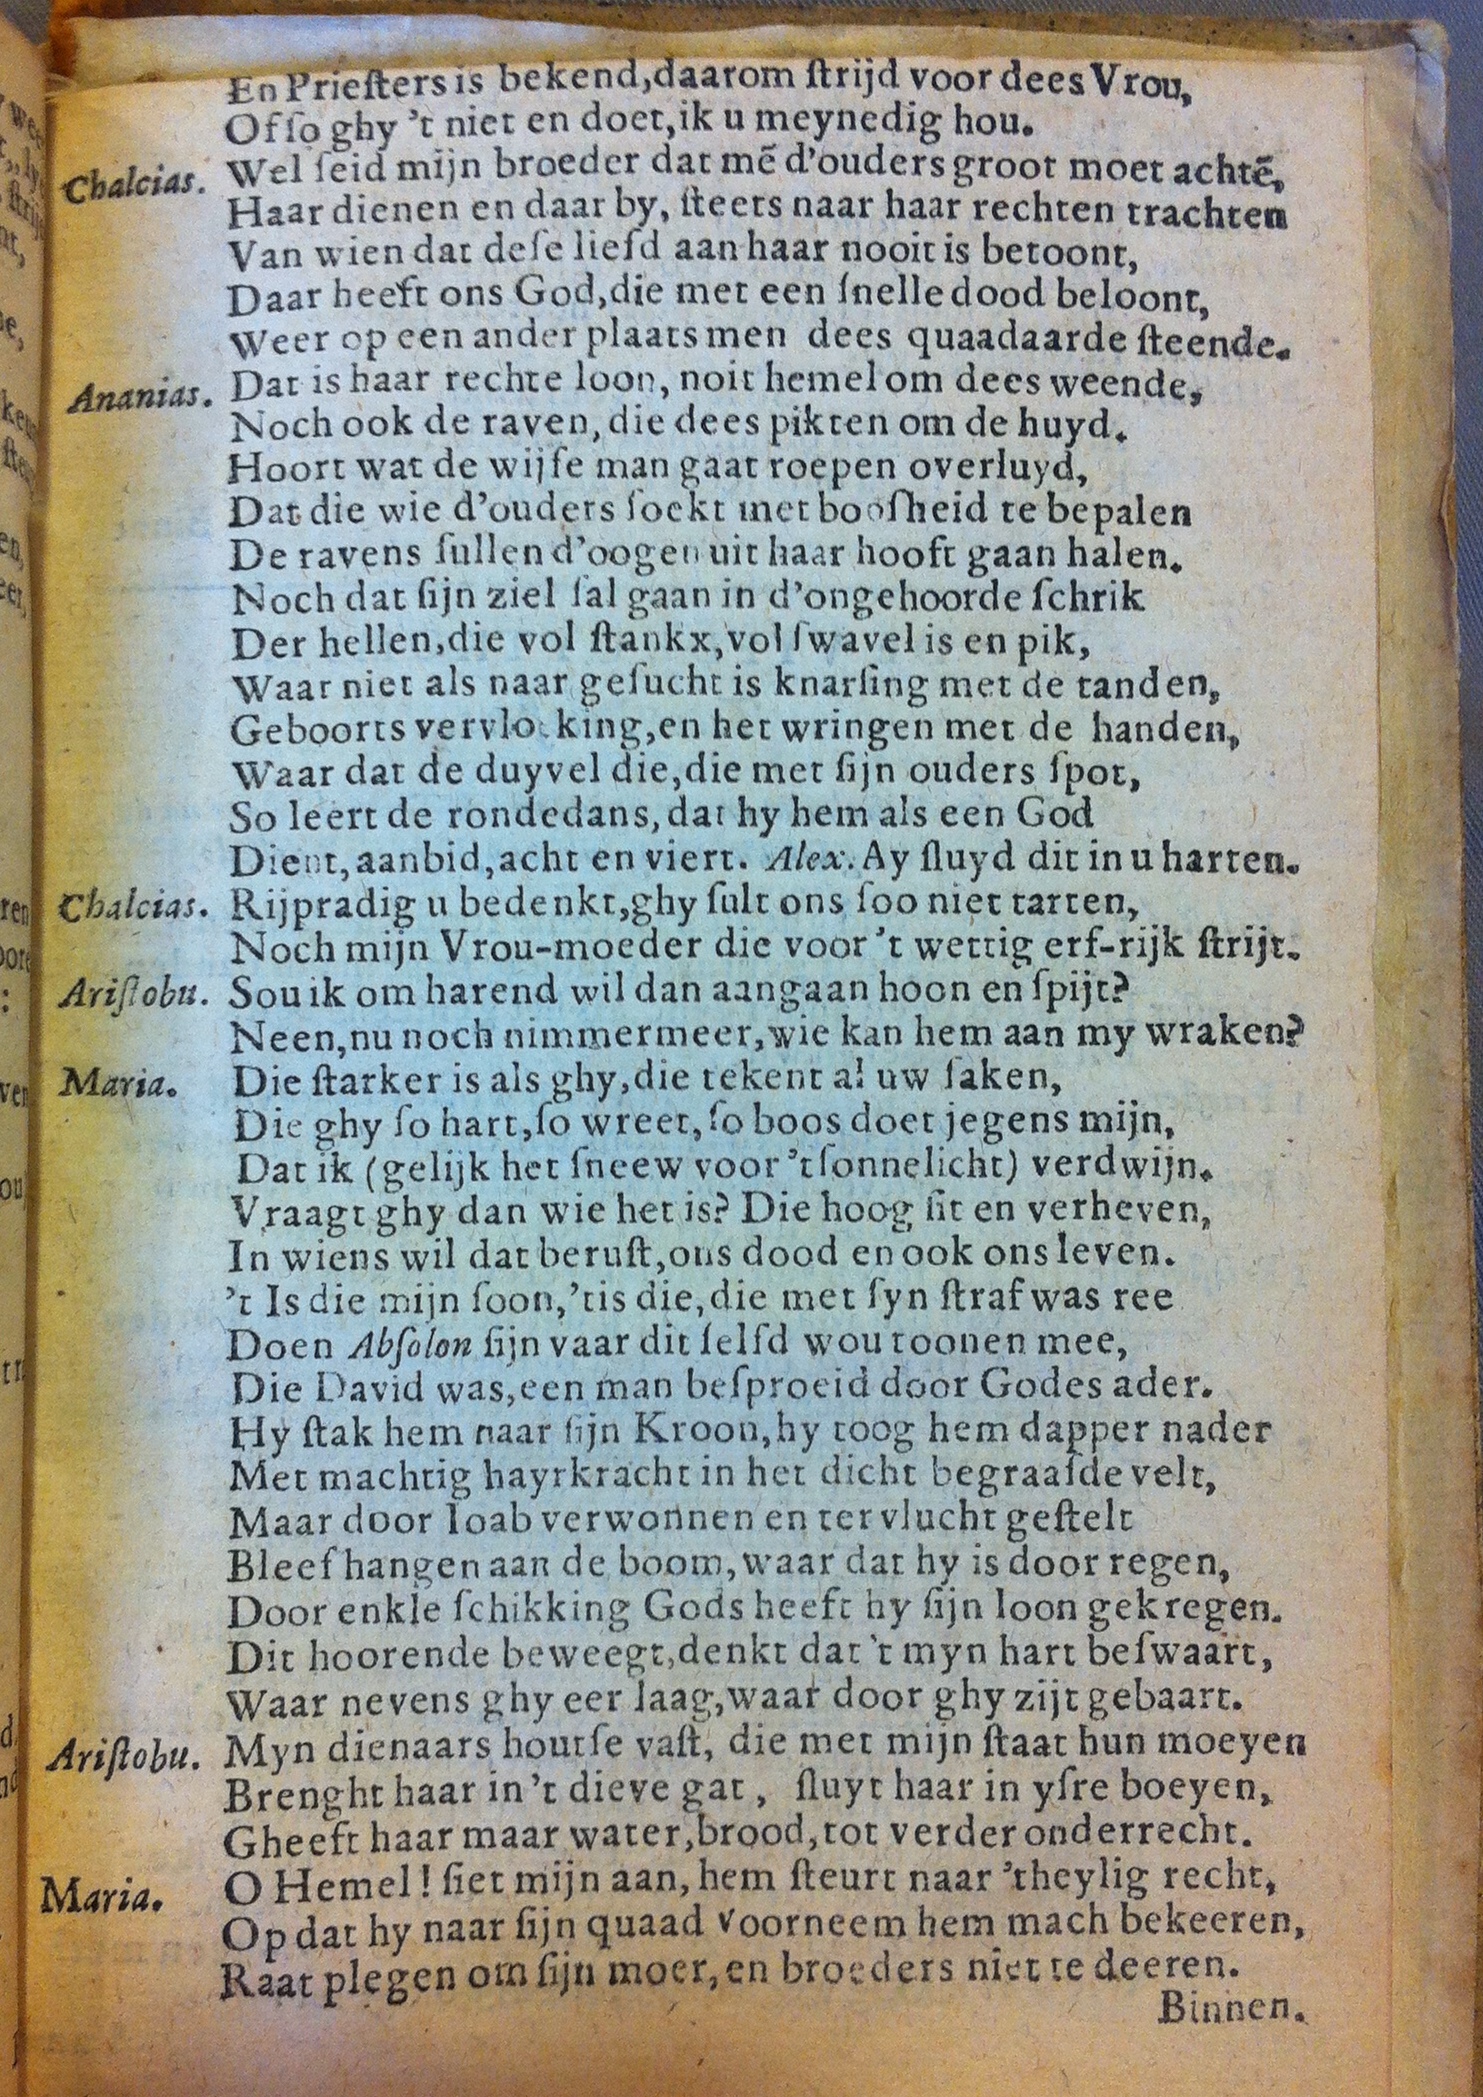 En Prieſters is bekend, daarom ſtrijd voor dees Vrou,
Of ſo ghy 't niet en doet, ik u meynedig hou.
Chalcias. Wel ſeid mijn broeder dat mē d'ouders groot moet achtē,
Haar dienen en daar by, ſteets naar haar rechten trachten
Van wien dat deſe liefd aan haar nooit is betoont,
Daar heeft ons God, die met een ſnelle dood beloont,
Weer op een ander plaats men dees quaadaarde ſteende.
Ananias. Dat is haar rechte loon, noit hemel om dees weende,
Noch ook de raven, die dees pikten om de huyd.
Hoort wat de wijſe man gaat roepen overluyd,
Dat die wie d'ouders ſoekt met booſheid te bepalen
De ravens ſullen d'oogen uit haar hooft gaan halen.
Noch dat ſijn ziel ſal gaan in d'ongehoorde ſchrik
Der hellen, die vol ſtankx, vol ſwavel is en pik,
Waar niet als naar geſucht is knarſing met de tanden,
Geboorts vervloeking, en het wringen met de handen,
Waar dat de duyvel die, die met ſijn ouders ſpot,
So leert de rondedans, dat hy hem als een God
Dient, aanbid, acht en viert. Alex. Ay ſluyd dit in u harten.
Chalcias. Rijpradig u bedenkt, ghy ſult ons ſoo niet tarten,
Noch mijn Vrou-moeder die voor 't wettig erf-rijk ſtrijt.
Ariſtobu. Sou ik om harend wil dan aangaan hoon en ſpijt?
Neen, nu noch nimmermeer, wie kan hem aan my wraken?
Maria. Die ſtarker is als ghy, die tekent al uw ſaken,
Die ghy ſo hart, ſo wreet, ſo boos doet jegens mijn,
Dat ik (gelijk het ſneew voor 't ſonnelicht) verdwijn.
Vraagt ghy dan wie het is? Die hoog ſit en verheven,
In wiens wil dat beruſt, ons dood en ook ons leven.
't Is die mijn ſoon, 'tis die, die met ſyn ſtraf was ree
Doen Abſolon ſijn vaar dit ſelfd wou toonen mee,
Die David was, een man beſproeid door Godes ader.
Hy ſtak hem naar ſijn Kroon, hy toog hem dapper nader
Met machtig hayrkracht in het dicht begraafde velt,
Maar door Ioab verwonnen en ter vlucht geſtelt
Bleef hangen aan de boom, waar dat hy is door regen,
Door enkle ſchikking Gods heeft hy ſijn loon gekregen.
Dit hoorende beweegt, denkt dat 't myn hart beſwaart,
Waar nevens ghy eer laag, waar door ghy zijt gebaart.
Ariſtobu. Myn dienaars houtſe vaſt, die met mijn ſtaat hun moeyen
Brenght haar in 't dieve gat, ſluyt haar in yſre boeyen,
Gheeft haar maar water, brood, tot verder onderrecht.
Maria. O Hemel! ſiet mijn aan, hem ſteurt naar 't heylig recht,
Op dat hy naar ſijn quaad voorneem hem mach bekeeren,
Raat plegen om ſijn moer, en broeders niet te deeren.
Binnen.